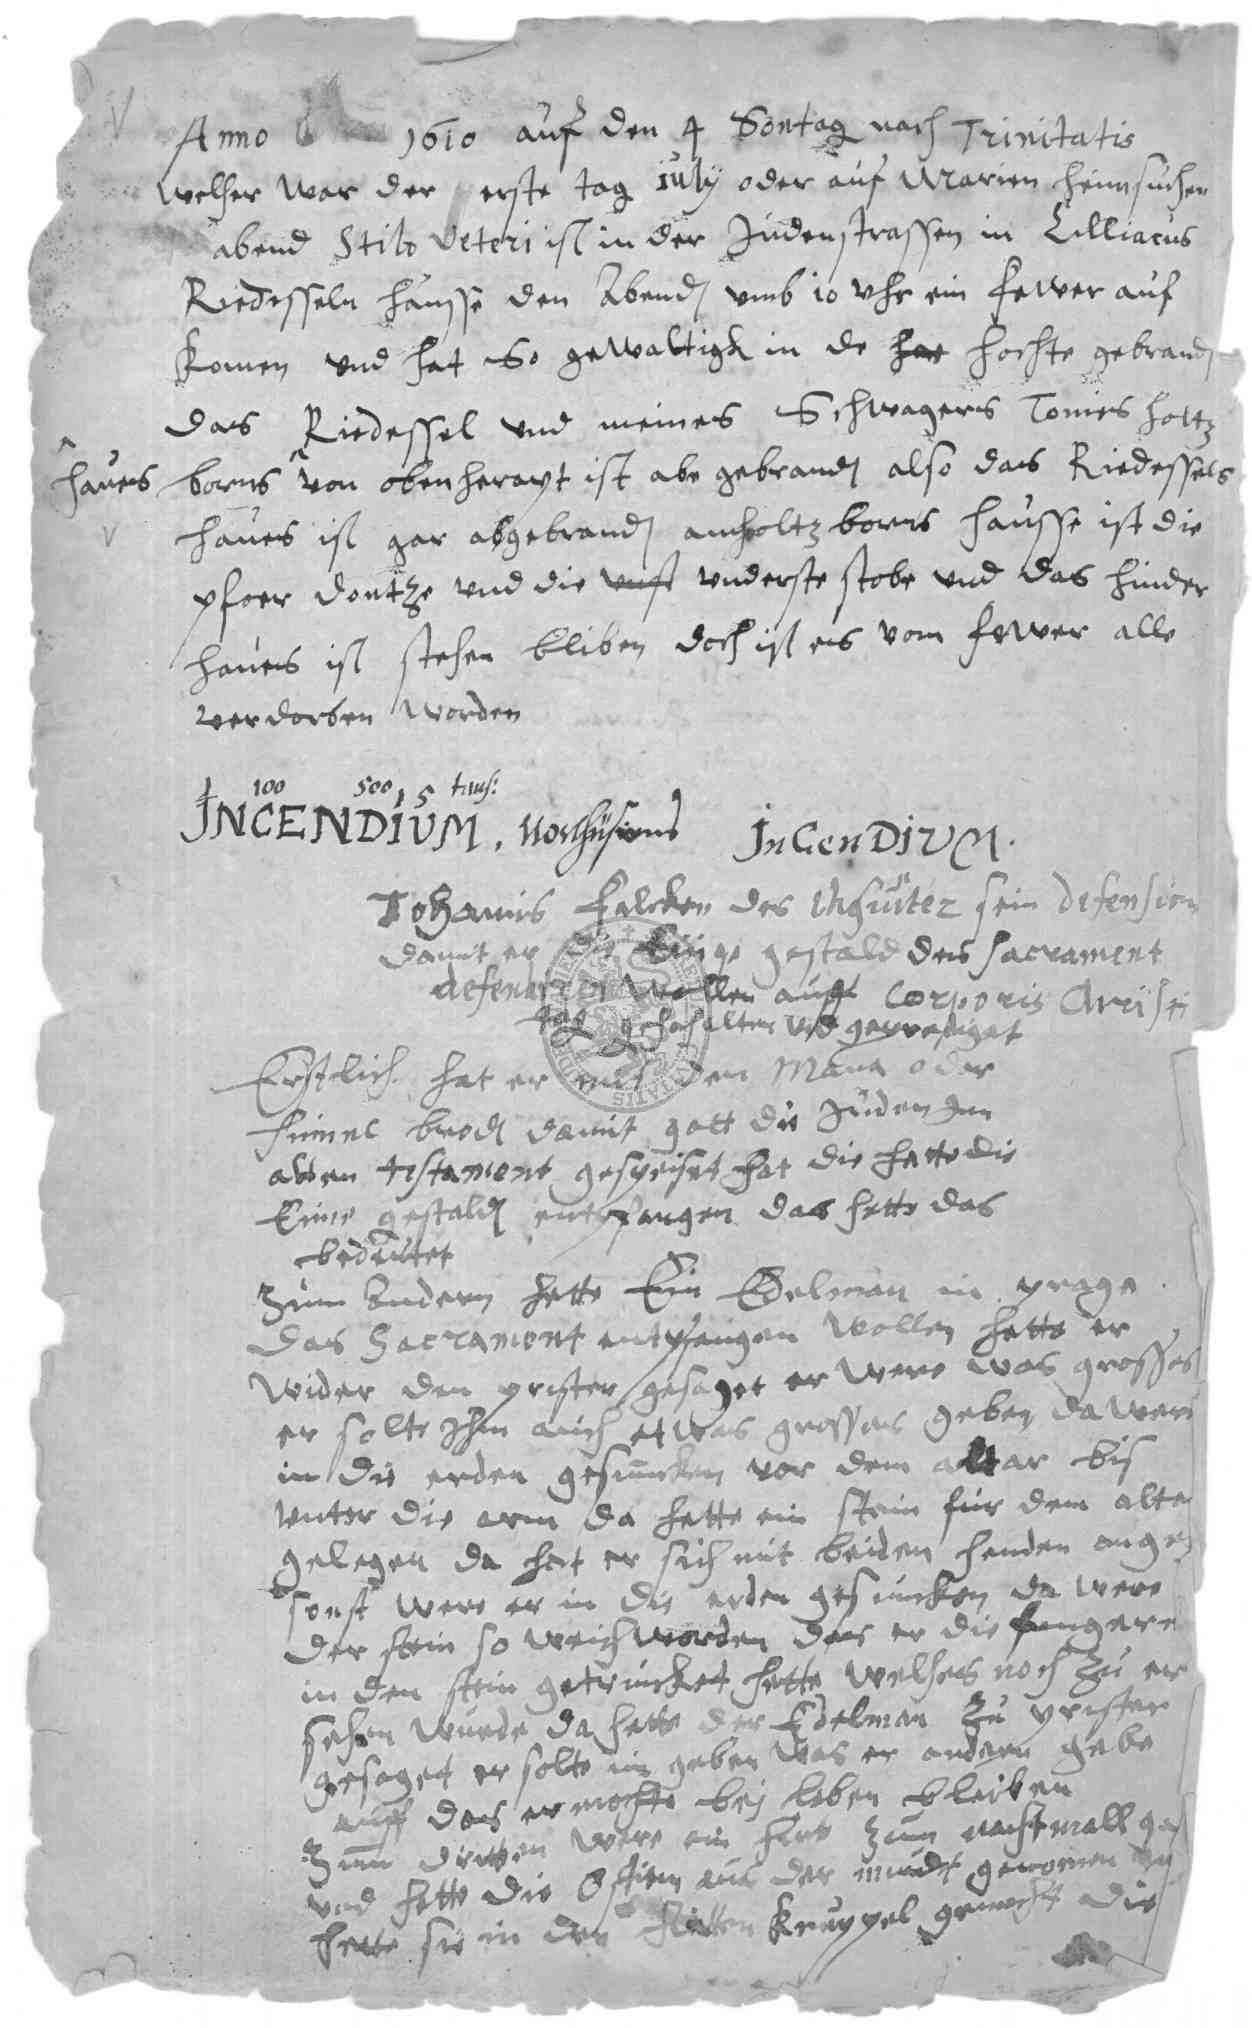 Anno 1610 auf den 4 Sontag nach Trinitatis
welher war der erste tag iuly oder auf Marien heimsuchen
abend Stilo Veteri ist in der Judenstrassen in Cilliacus
Riedesseln hausse den Abend vmb 10 vhr ein fewer auf
komen vnd hat so gewaltigk in de hochte gebrand
das Riedessel vnd meines Schwagers Tonies holtz
haues borns von oben herapt ist abe gebrand also das Riedessels
haues ist gar abgebrand am holtzborns hausse ist die
pfoer dontze vnd die vnderste stobe vnd das hinder
haues ist stehen bliben doch ist es vom fewer alle
verdorben worden
1 100 500 1 5 taus:
INCENDIUM, Northusiens InCenDIVM.
Johannis Falcken des sein defension
damit er die Einige gestald des sacrament
wollen auff Corporis Cristi
tag gehalten vnd geprediget
Erstlich hat er mit den Mana oder
himel brod damit gott die Juden Im
alten testament gespeiset hat die hette die
Eine gestald entpfangen das hette das
bedeutet
Zum Andern hette Ein Edelman in prage
das Sacrament entpfangen wollen hette er
wider den prister gesaget er were was grosses
er solte Ihm auch etwas grosses geben da were
in die erden gesuncken vor dem altar bis
vnter die arm da hette ein stein fur dem alta
gelegen da hat er sich mit beiden henden
sonst were er in die erden gesuncken da were
der stein so weich worden das er die fingere
in den stein getrucket hette welhes noch zu er
sehen wurde da hette der Edelman zu prister
gesaget er solte im geben was er andern gebe
auff das er mochte bei leben bleiben
Zum dritten were ein hirt zum nachtmall
vnd hette die Ostien aus der mundt genomen
hette sie in den kruppel gemacht die